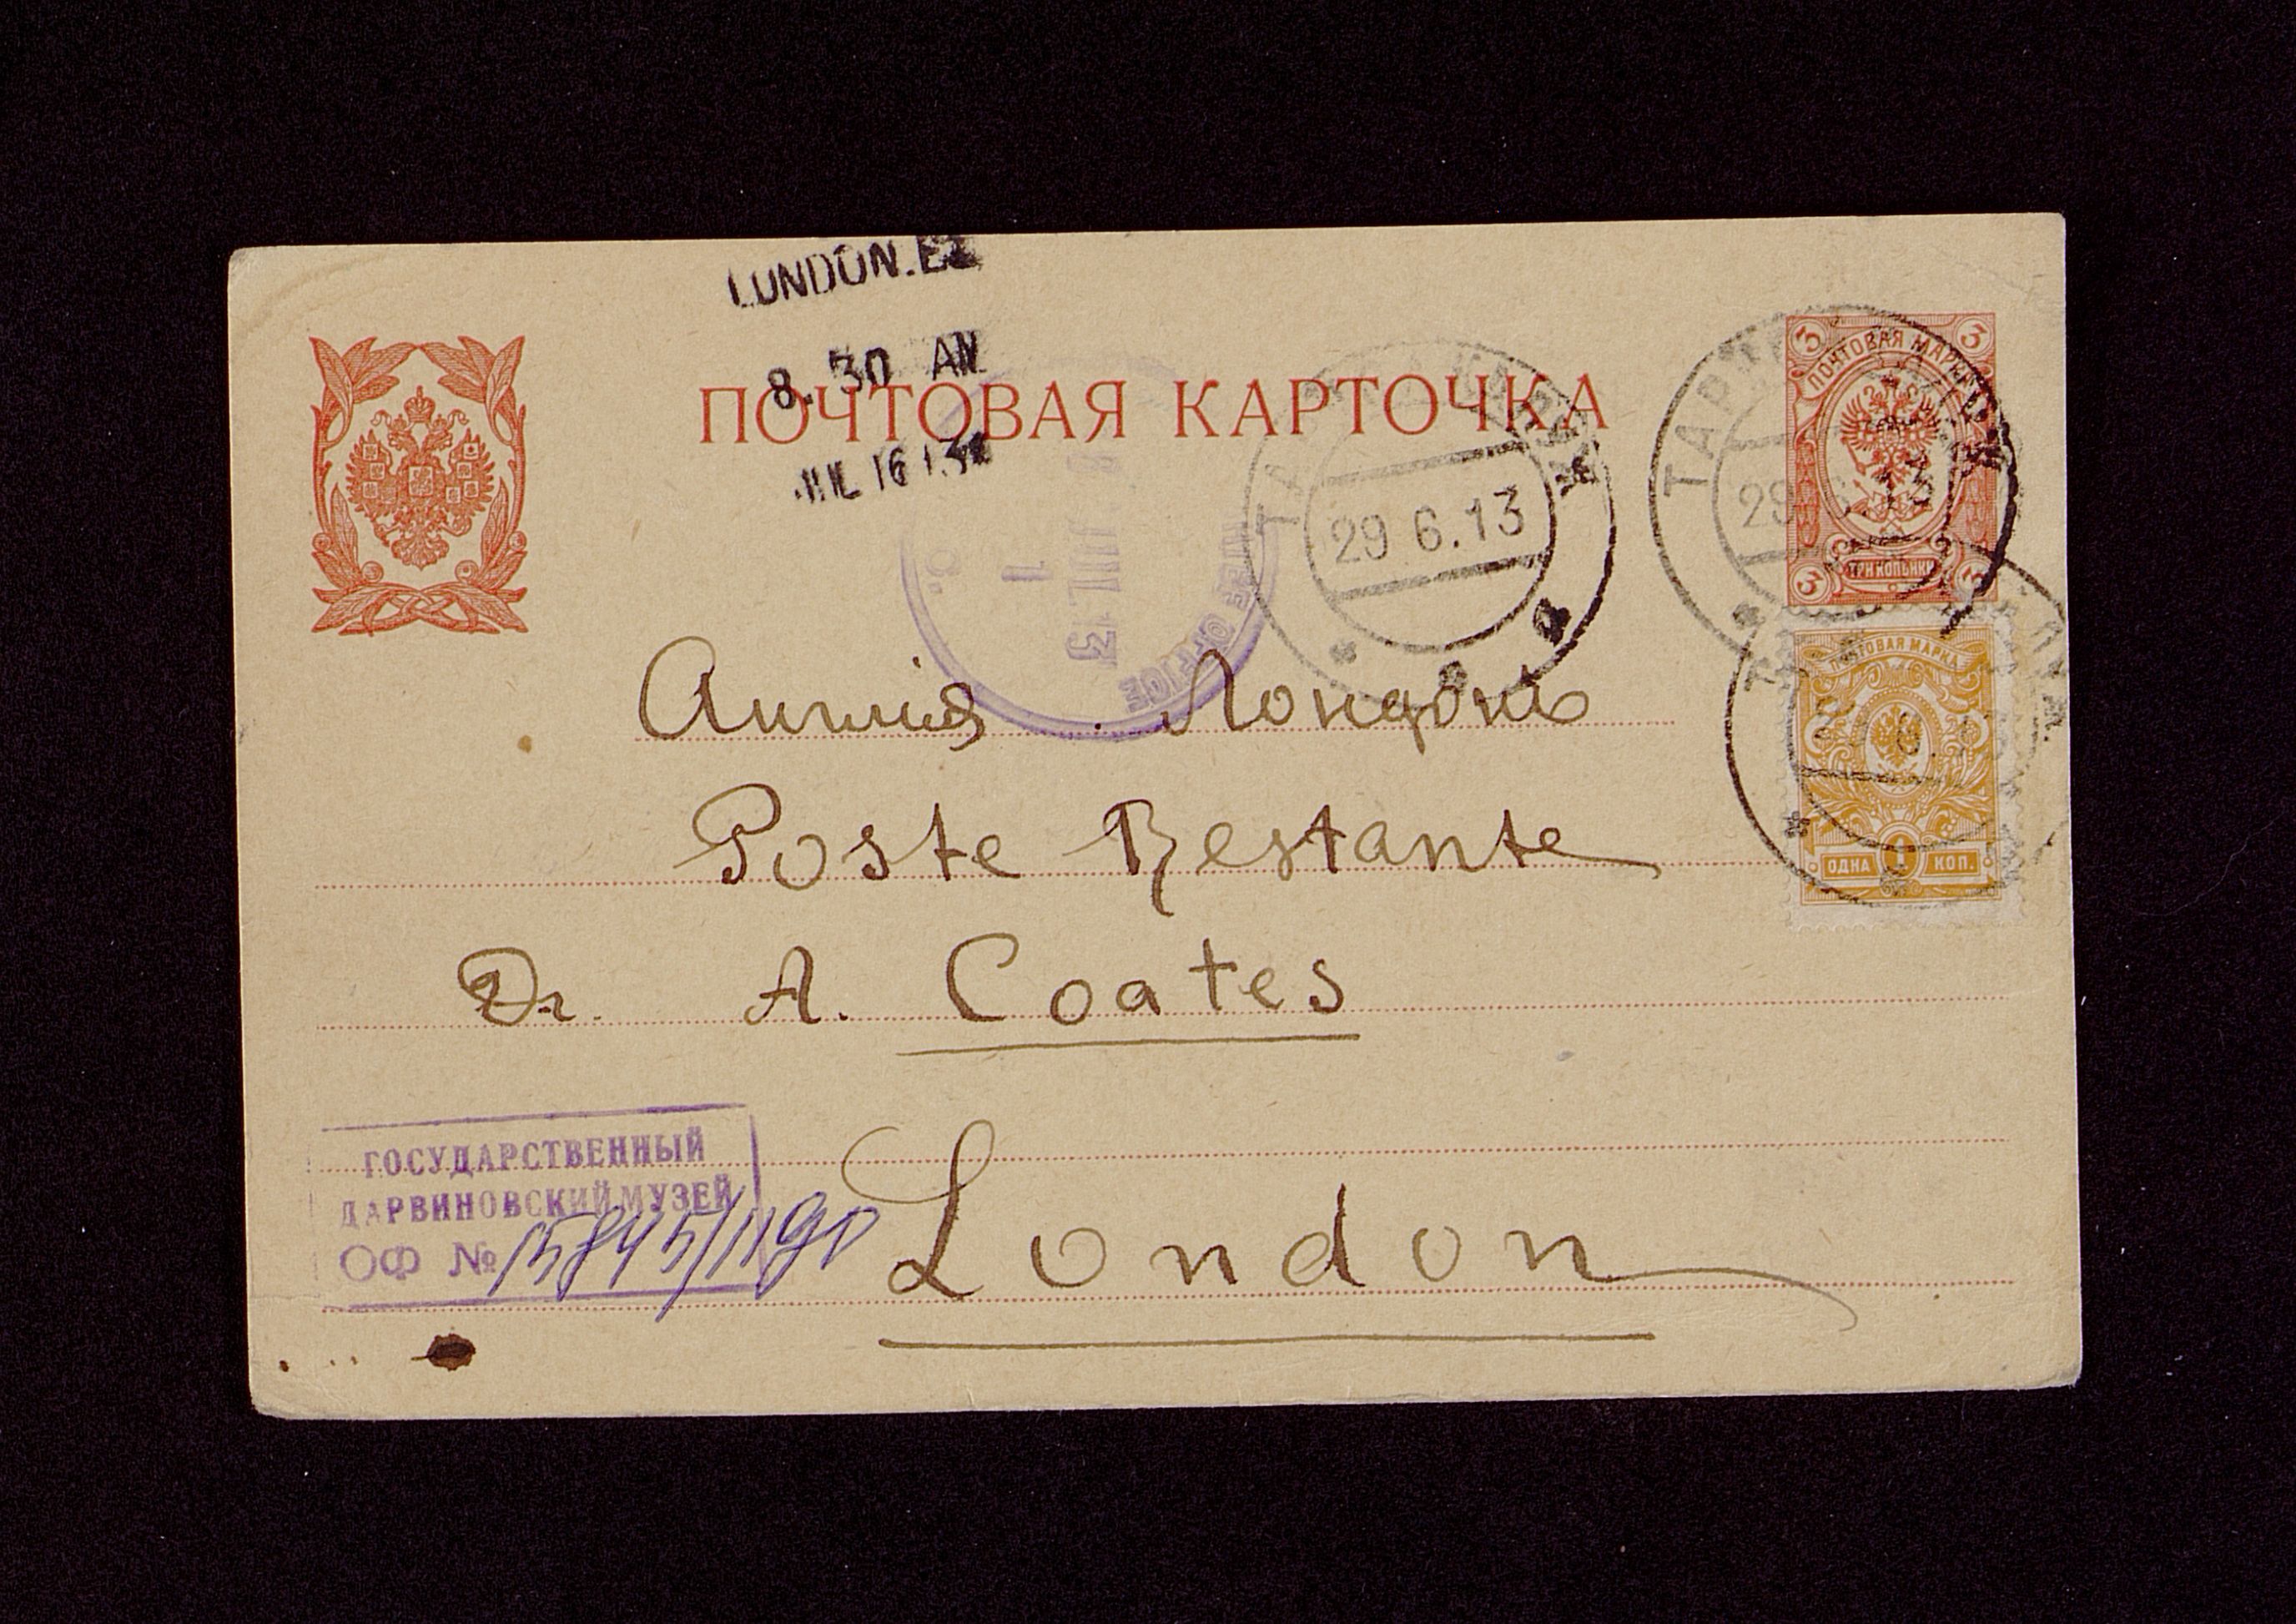 LONDON.E
8. 30 AM
JUL 16 13
ПОЧТОВАЯ КАРТОЧКА
3 3
ПОЧТОВАЯ МАРКА
ТРИ КОПѢЙКИ
3 3
29 6.13
29 6.13
JUL 13
OFFICE
ПОЧТОВАЯ МАРКА
ОДНА 1 КОП.
Англія. Лондонъ
Poste Restante
Dr. A. Coates
London
ГОСУДАРСТВЕННЫЙ
ДАРВИНОВСКИЙ МУЗЕЙ
ОФ № 15845/1190